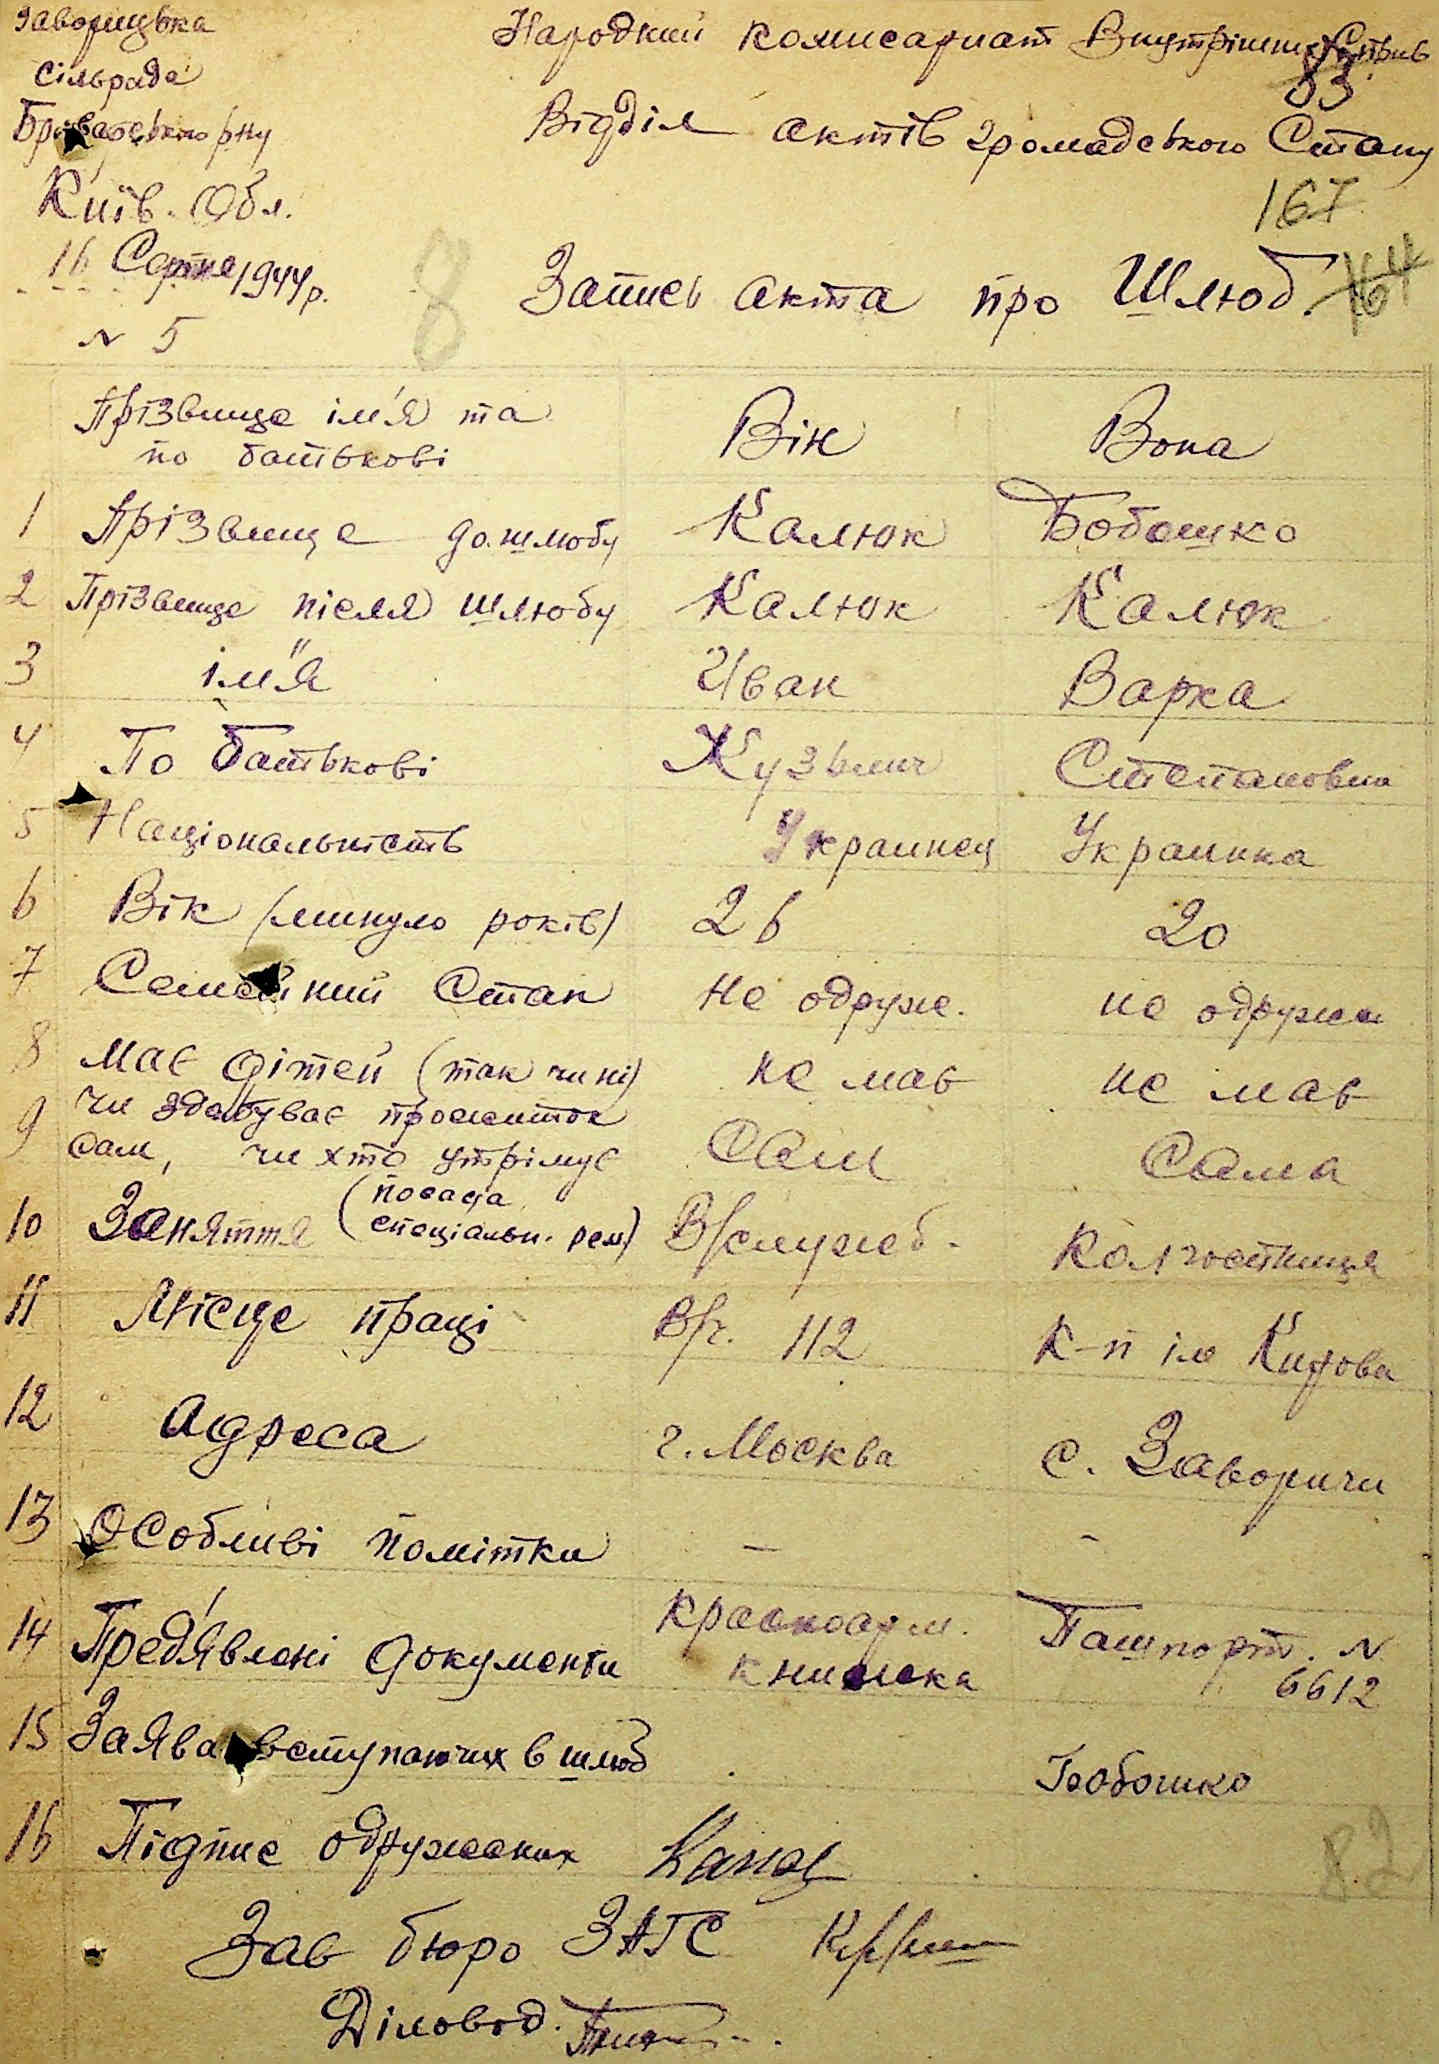 Заворицька
сільрада
Броварського р-ну
Київ. Обл.
16 Серпня 1944 р.
N 5
Народний комисариат Внутрішніх Справ
83
Відділ актів громадського Стану
167
8
Запись акта про Шлюб.
164
Прізвище ім'я та по батькові Він Вона
1 Прізвище до шлюбу Калюк Бобошко
2 Прізвище після шлюбу Калюк Калюк
3 ім"я Иван Варка
4 По батькові Кузьмич Степановна
5 Національність Украинец Украинка
6 Вік (минуло років) 26 20
7 Семейний Стан не одруж. не одружен
8 Має дітей (так чи ні) не мав не мав
9 чи здобуває прожиток
сам, чи хто утрімує Сам Сама
10 Заняття (посада спеціальн. рем) В/служб. Колгостниця
11 Місце праці В/ч. 112 К-п ім Кирова
12 Адреса г. Москва с. Заворичи
13 Особливі помітки — -
14 Пред'явлені документи Красноарм. книжка Пашпорт. N 6612
15 Заява вступаючих в шлюб Бобошко
16 Підпис одружених
82
Зав бюро ЗАГС
Діловод.